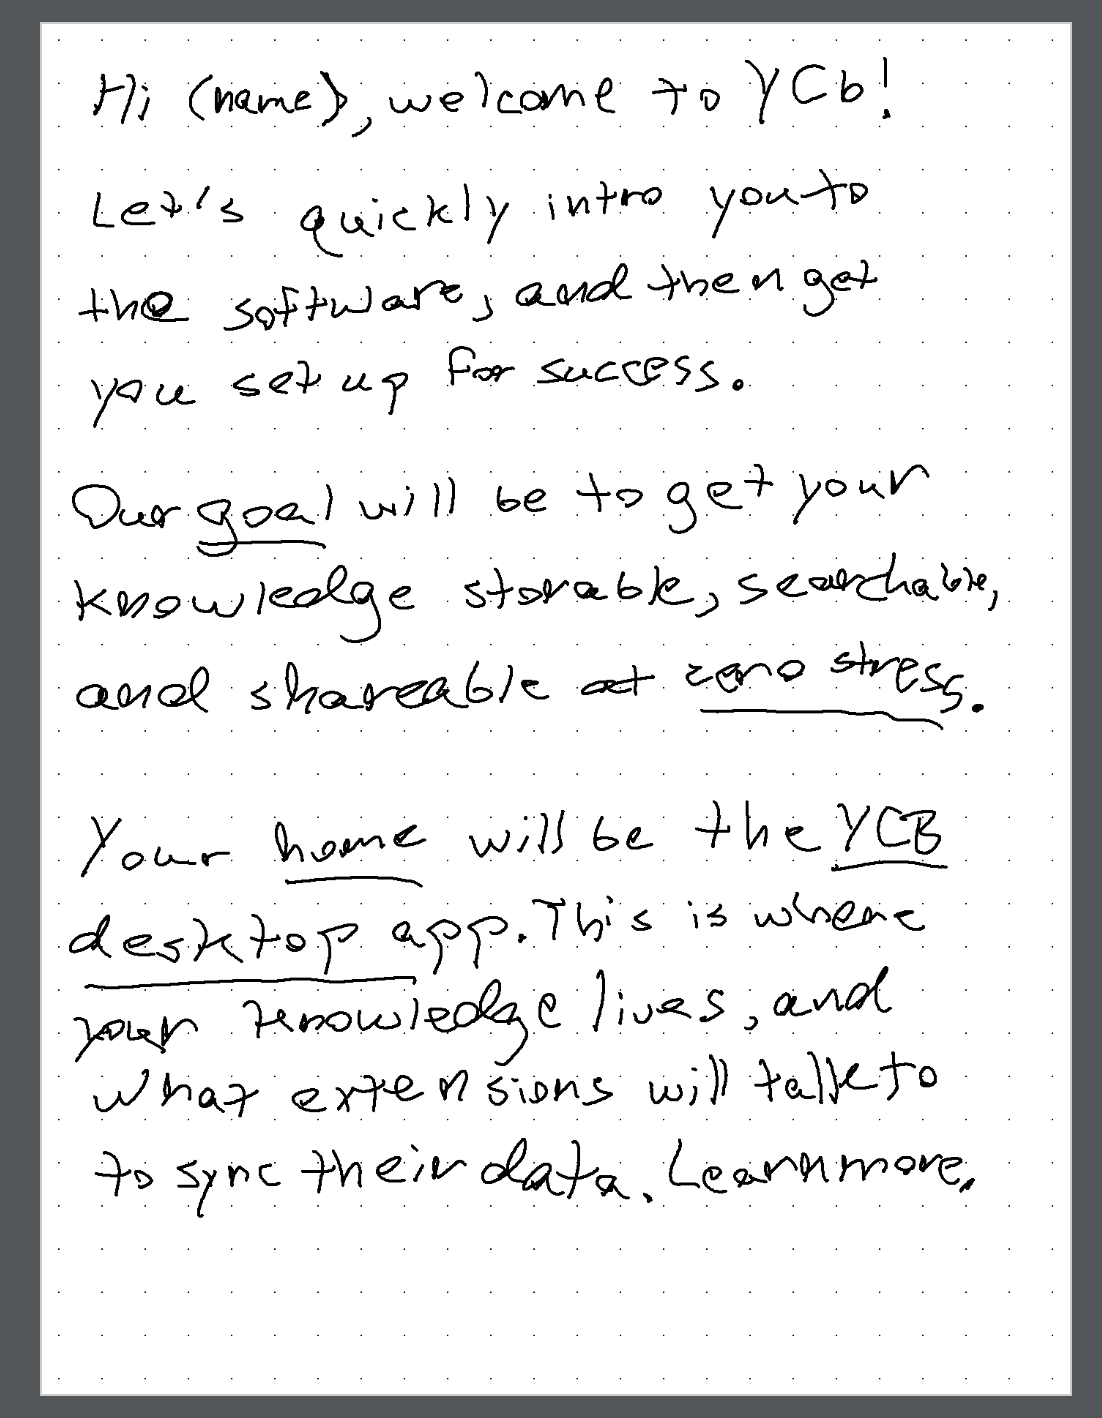 Hi (name), welcome to YCb!
Let's quickly intro you to
the software, and then get
you set up for success.
Our goal will be to get your
knowledge storable, searchable,
and shareable at zero stress.
Your home will be the YCB
desktop app. This is where
your knowledge lives, and
what extensions will talk to
to sync their data. Learn more.